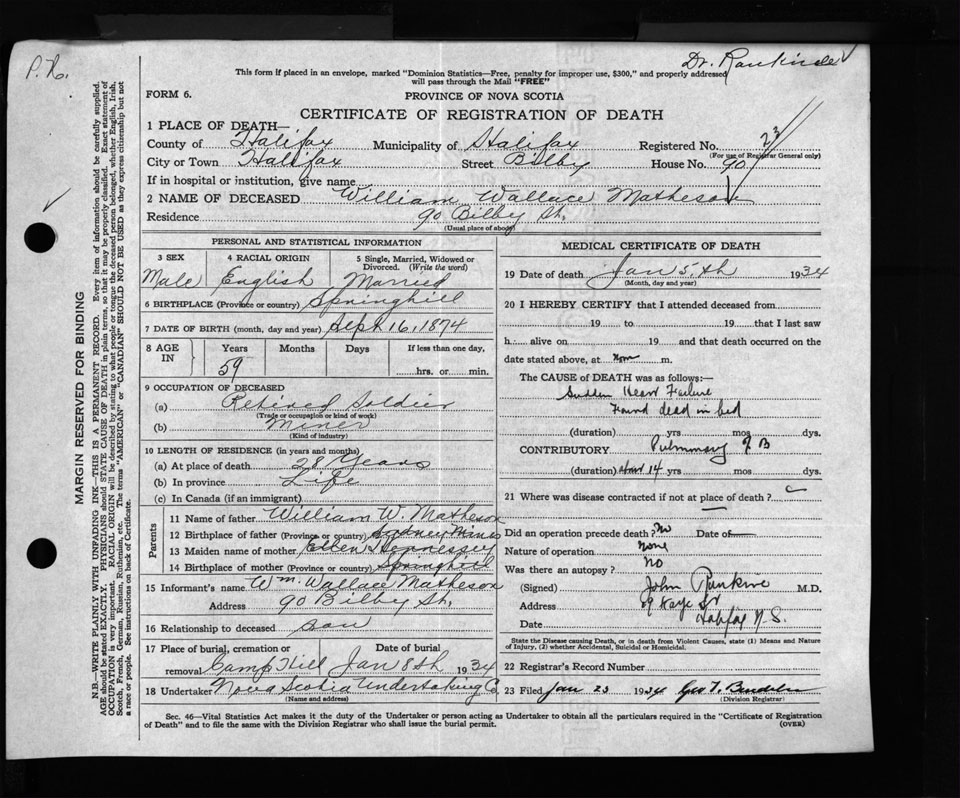 P.N.
Dr. Rankine
This form if placed in an envelope, marked "Dominion Statistics—Free, penalty for improper use, $300," and properly addressed
will pass through the Mail "FREE"
FORM 6.
PROVINCE OF NOVA SCOTIA
CERTIFICATE OF REGISTRATION OF DEATH
1 PLACE OF DEATH—
County of Halifax Municipality of Halifax Registered No. 23
(For use of Registrar General only)
City or Town Halifax Street Bilby House No. 90
If in hospital or institution, give name
2 NAME OF DECEASED William Wallace Matheson
Residence 90 Bilby St.
(Usual place of abode)
PERSONAL AND STATISTICAL INFORMATION
3 SEX 4 RACIAL ORIGIN 5 Single, Married, Widowed or
Divorced. (Write the word)
Male English Married
6 BIRTHPLACE (Province or country) Springhill
7 DATE OF BIRTH (month, day and year) Sept 16, 1874
8 AGE IN Years Months Days If less than one day,
59 hrs. or min.
9 OCCUPATION OF DECEASED
(a) Retired Soldier
(Trade or occupation or kind of work)
(b) Miner
(Kind of industry)
10 LENGTH OF RESIDENCE (in years and months)
(a) At place of death 28 Years
(b) In province Life
(c) In Canada (if an immigrant)
Parents
11 Name of father William W. Matheson
12 Birthplace of father (Province or country) Sydney Mines
13 Maiden name of mother Ellen Hennessey
14 Birthplace of mother (Province or country) Springhill
15 Informant's name Wm. Wallace Matheson
Address 90 Bilby St.
16 Relationship to deceased son
17 Place of burial, cremation or Date of burial
removal Camp Hill Jan 8th 1934
18 Undertaker Nova Scotia Undertaking Co.
(Name and address)
MEDICAL CERTIFICATE OF DEATH
19 Date of death Jan 5.th 1934
(Month, day and year)
20 I HEREBY CERTIFY that I attended deceased from
19 to 19 that I last saw
h alive on 19 and that death occurred on the
date stated above, at noon m.
The CAUSE of DEATH was as follows:—
Sudden Heart Failure
Found dead in bed
(duration) yrs mos dys.
CONTRIBUTORY Pulmonary T B
(duration) about 14 yrs mos dys.
21 Where was disease contracted if not at place of death?
Did an operation precede death? No Date of
Nature of operation None
Was there an autopsy? No
(Signed) John Rankine M.D.
Address 29 Kaye St
Halifax N.S.
Date
State the Disease causing Death, or in death from Violent Causes, state (1) Means and Nature
of Injury, (2) whether Accidental, Suicidal or Homicidal.
22 Registrar's Record Number
23 Filed Jan 23 1934 Geo T.
(Division Registrar)
Sec. 46—Vital Statistics Act makes it the duty of the Undertaker or person acting as Undertaker to obtain all the particulars required in the "Certificate of Registration
of Death" and to file the same with the Division Registrar who shall issue the burial permit. (OVER)
MARGIN RESERVED FOR BINDING
N.B.—WRITE PLAINLY WITH UNFADING INK—THIS IS A PERMANENT RECORD. Every item of information should be carefully supplied.
AGE should be stated EXACTLY. PHYSICIANS should STATE CAUSE OF DEATH in plain terms, so that it may be properly classified. Exact statement of
OCCUPATION is very important. RACIAL ORIGIN will be described by stating to what people or tongue the deceased person belonged, whether English, Irish,
Scotch, French, German, Russian, Ruthenian, etc. The terms "AMERICAN" or "CANADIAN" SHOULD NOT BE USED as they express citizenship but not
a race or people. See instructions on back of Certificate.